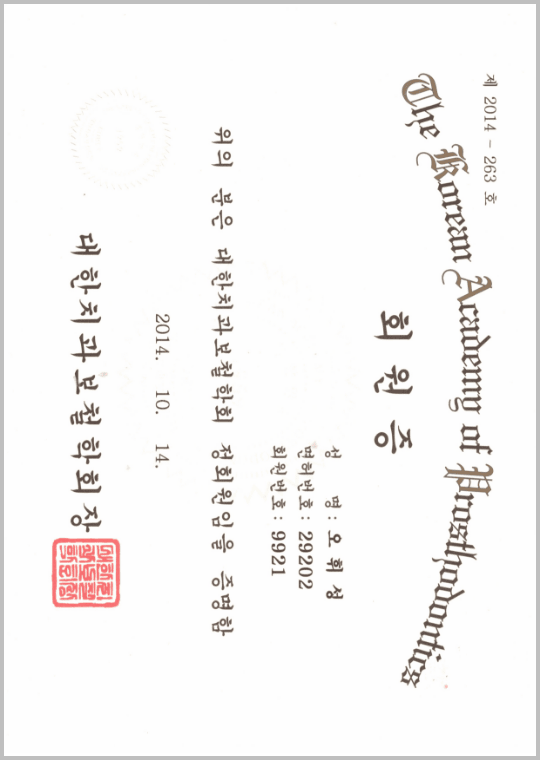 제 2014 - 263 호
The Korean Academy of Prosthodontics
회원증
성 명 : 오 휘 성
면허번호 : 29202
회원번호 : 9921
위의 분은 대한치과보철학회 정회원임을 증명함
2014. 10. 14.
대한치과보철학회장